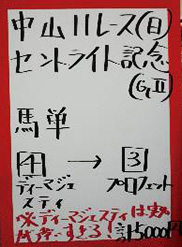 中山11レース(日)
セントライト記念
(GⅡ)
馬単
4 → 3
ディーマジェスティ プロフェット
※ディーマジェスティは
計5000円